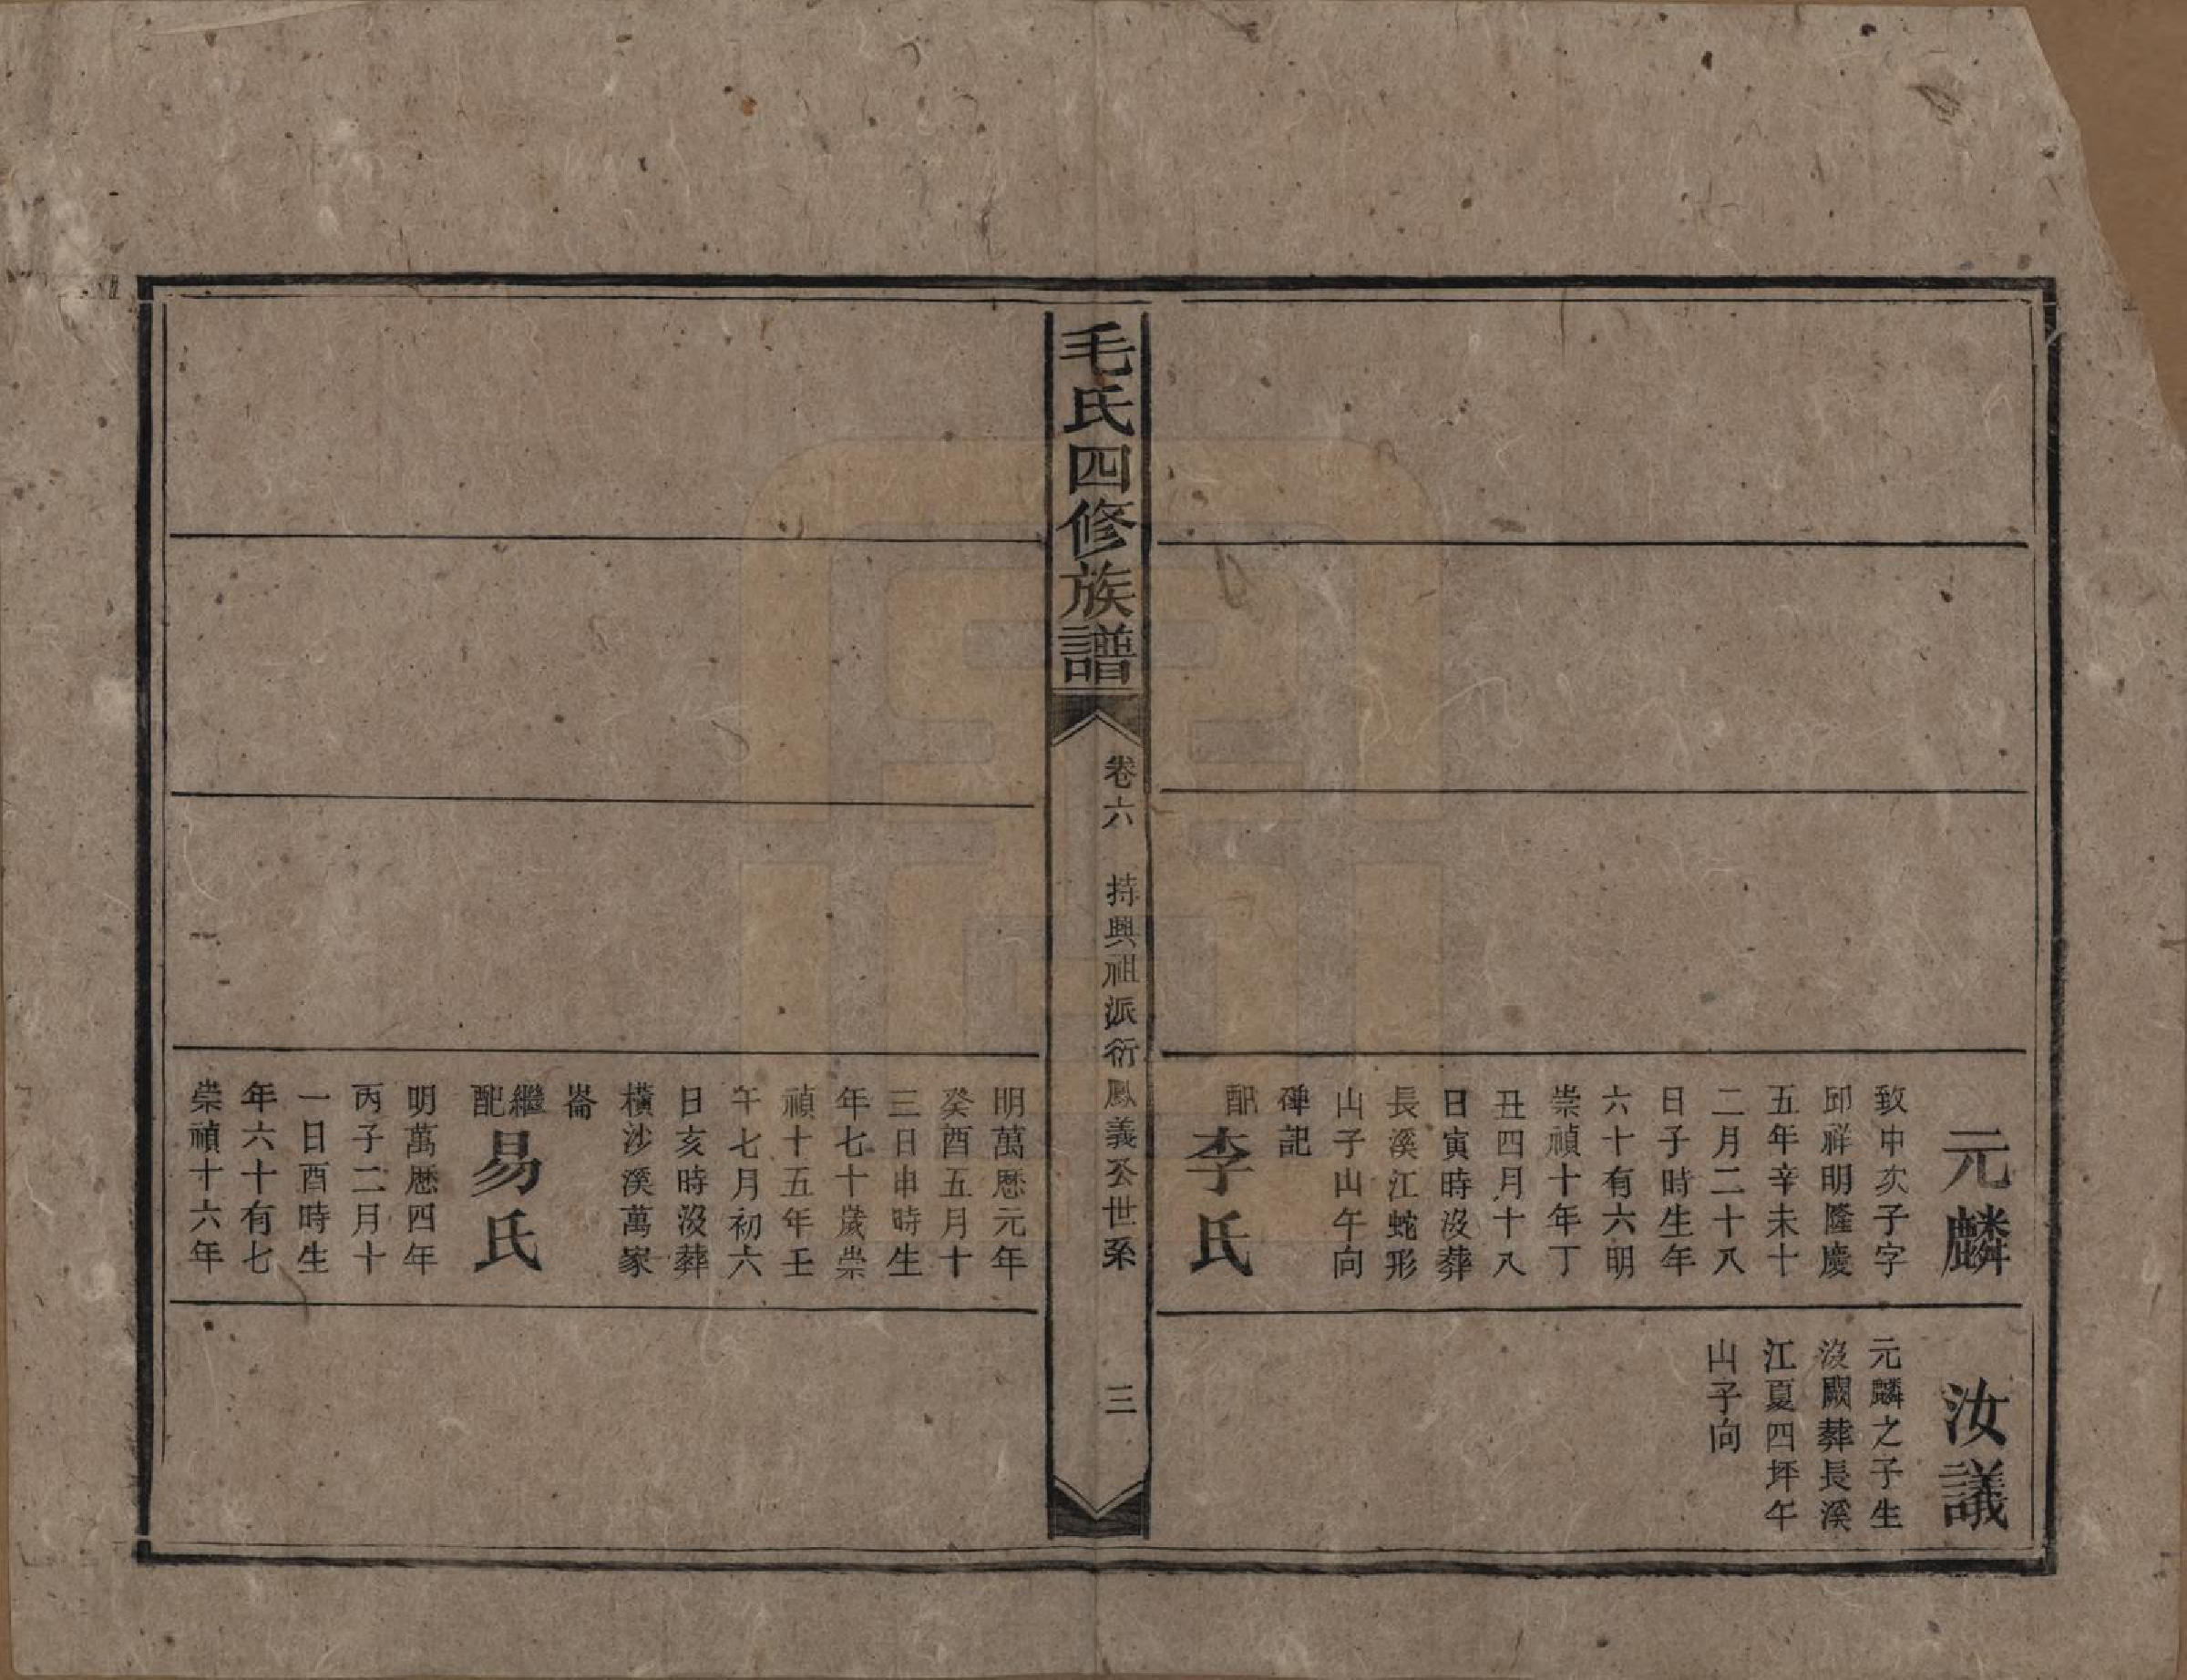 元麟
致中次子字
邱祥明隆慶
五年辛未十
二月二十八
日子時生年
六十有六明
崇禎十年丁
丑四月十八
日寅時沒葬
長溪江蛇形
山子山午向
碑記
配李氏
汝議
元麟之子生
沒闕葬長溪
江夏四坪午
山子向
毛氏四修族譜
卷六 持興祖派衍鳳義公世系 三
明萬歷元年
癸酉五月十
三日申時生
年七十歲崇
禎十五年壬
午七月初六
日亥時沒葬
橫沙溪萬家
崙
繼配易氏
明萬歷四年
丙子二月十
一日酉時生
年六十有七
崇禎十六年